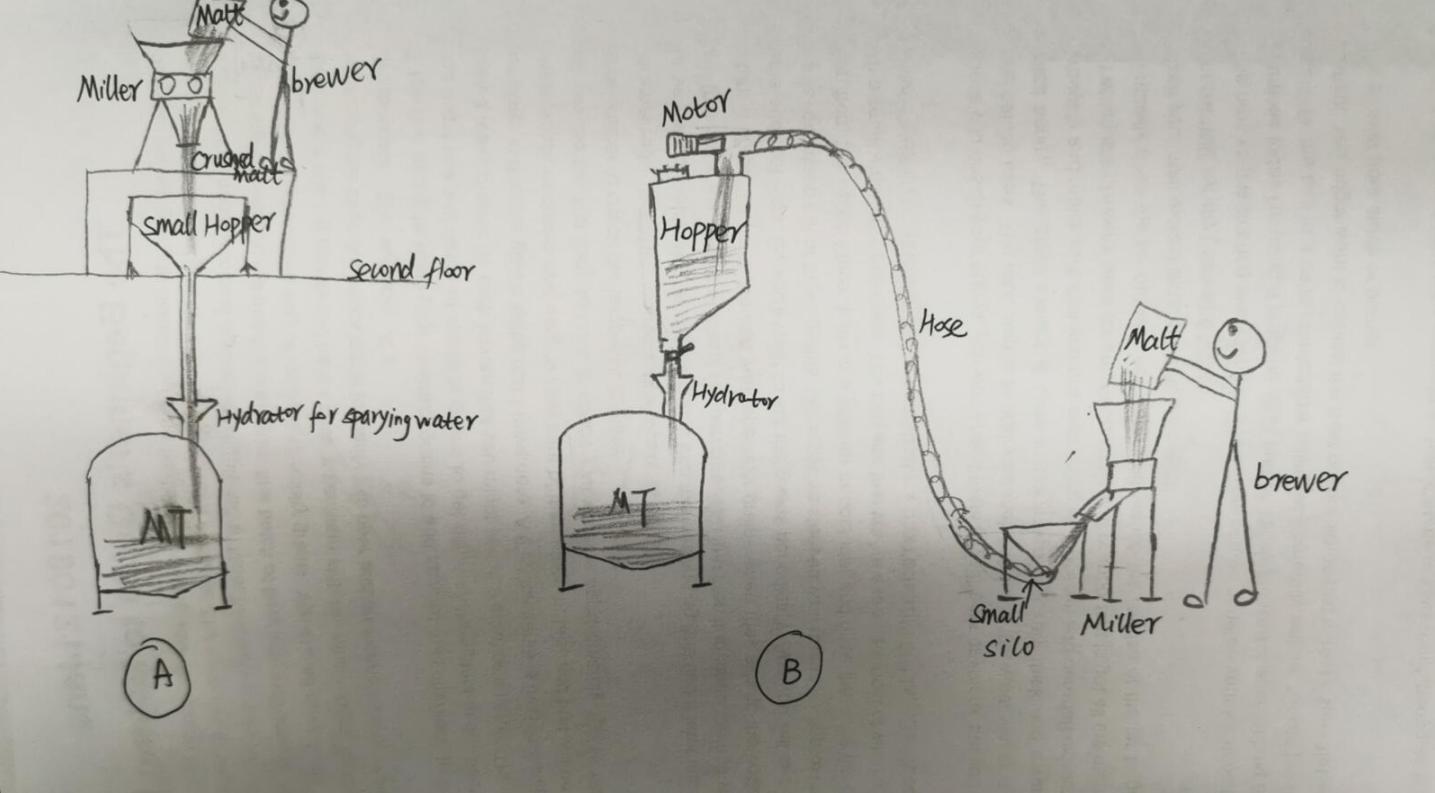 Malt
brewer
Miller
Crushed
Malt
Small Hopper
Second floor
Hydrator for sparying water
MT
A
Motor
Hopper
Hose
Hydrator
MT
Malt
brewer
Small
silo
Miller
B